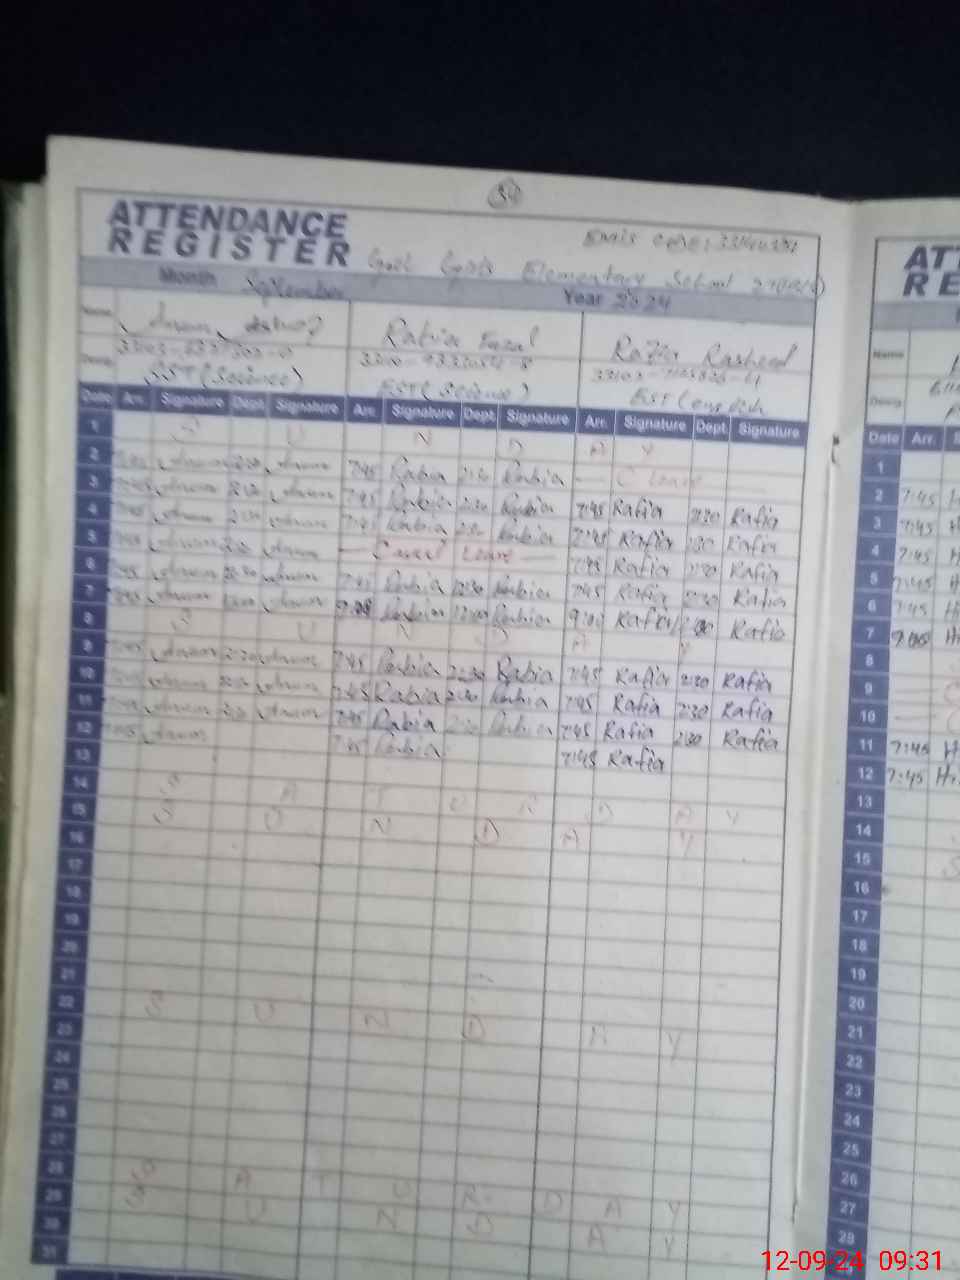 34
ATTENDANCE
REGISTER
Emis Code:
Govt Girls Elementary School
Month September Year 2024
Name Anum Rabia Fazal Razia Rasheed
Desig. SST (Science) EST (Science) EST (English
Date Arr. Signature Dept. Signature Arr. Signature Dept. Signature Arr. Signature Dept. Signature
1 S U N D A Y
2 7:45 Anum 2:30 Anum 7:45 Rabia 2:30 Rabia — C Leave —
3 7:45 Anum 2:30 Anum 7:45 Rabia 2:30 Rabia 7:45 Rafia 2:30 Rafia
4 7:45 Anum 2:30 Anum 7:45 Rabia 2:30 Rabia 7:45 Rafia 2:30 Rafia
5 7:45 Anum 2:30 Anum — Casual Leave — 7:45 Rafia 2:30 Rafia
6 7:45 Anum 12:30 Anum 7:45 Rabia 12:30 Rabia 7:45 Rafia 2:30 Rafia
7 Anum Anum 9:00 Rabia 12:00 Rabia 9:00 Rafia Rafia
8 S U N D A Y
9 7:45 Anum 2:30 Anum 7:45 Rabia 2:30 Rabia 7:45 Rafia 2:30 Rafia
10 7:45 Anum 2:30 Anum 7:45 Rabia 2:30 Rabia 7:45 Rafia 2:30 Rafia
11 7:45 Anum 2:30 Anum 7:45 Rabia 2:30 Rabia 7:45 Rafia 2:30 Rafia
12 7:45 Anum 7:45 Rabia 7:45 Rafia
13
14 S A T U R D A Y
15 S U N D A Y
16
17
18
19
20
21
22 S U N D A Y
23
24
25
26
27
28 S A T U R D A Y
29 S U N D A Y
30
31
ATT
RE
Name
Desig.
Date Arr. S
1
2 7:45 H
3 7:45 H
4 7:45 H
5 7:45 H
6 7:45 H
7 9:00 H
8
9
10
11 7:45 H
12 7:45 H
13
14
15 S
16
17
18
19
20
21
22
23
24
25
26
27
28
12-09-24 09:31